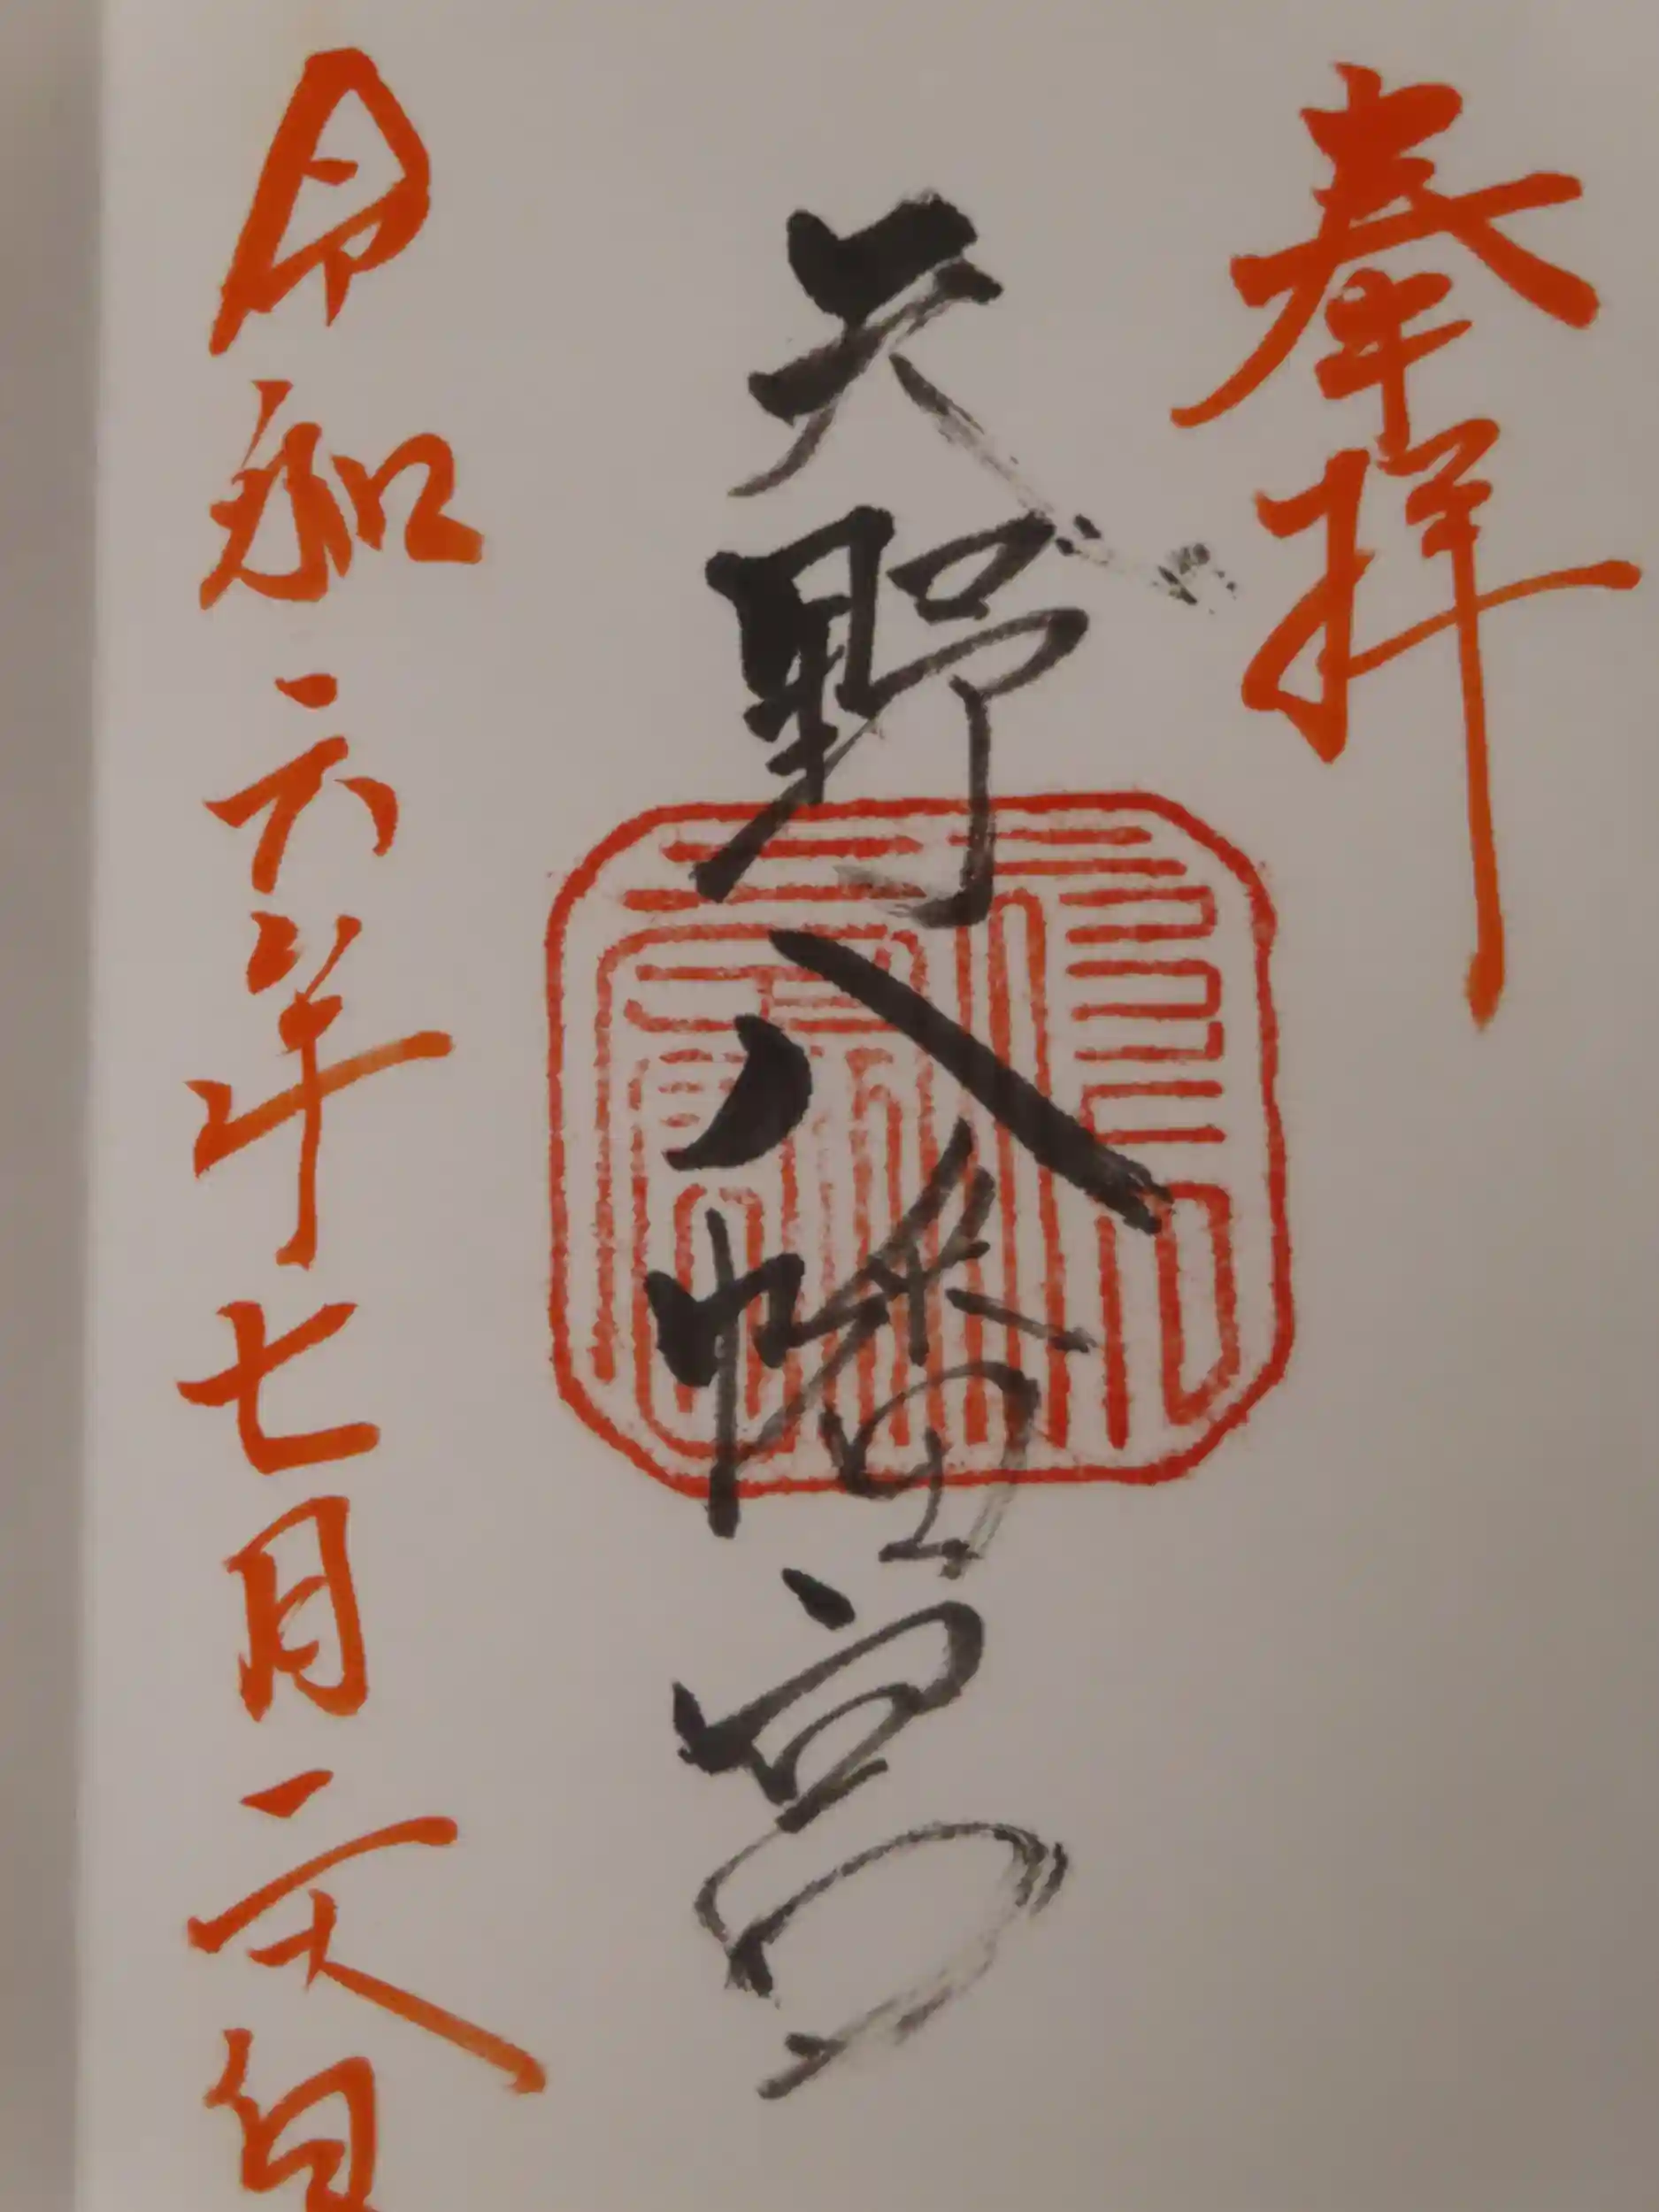 奉拝
天野八幡宮
令和六年七月二八日